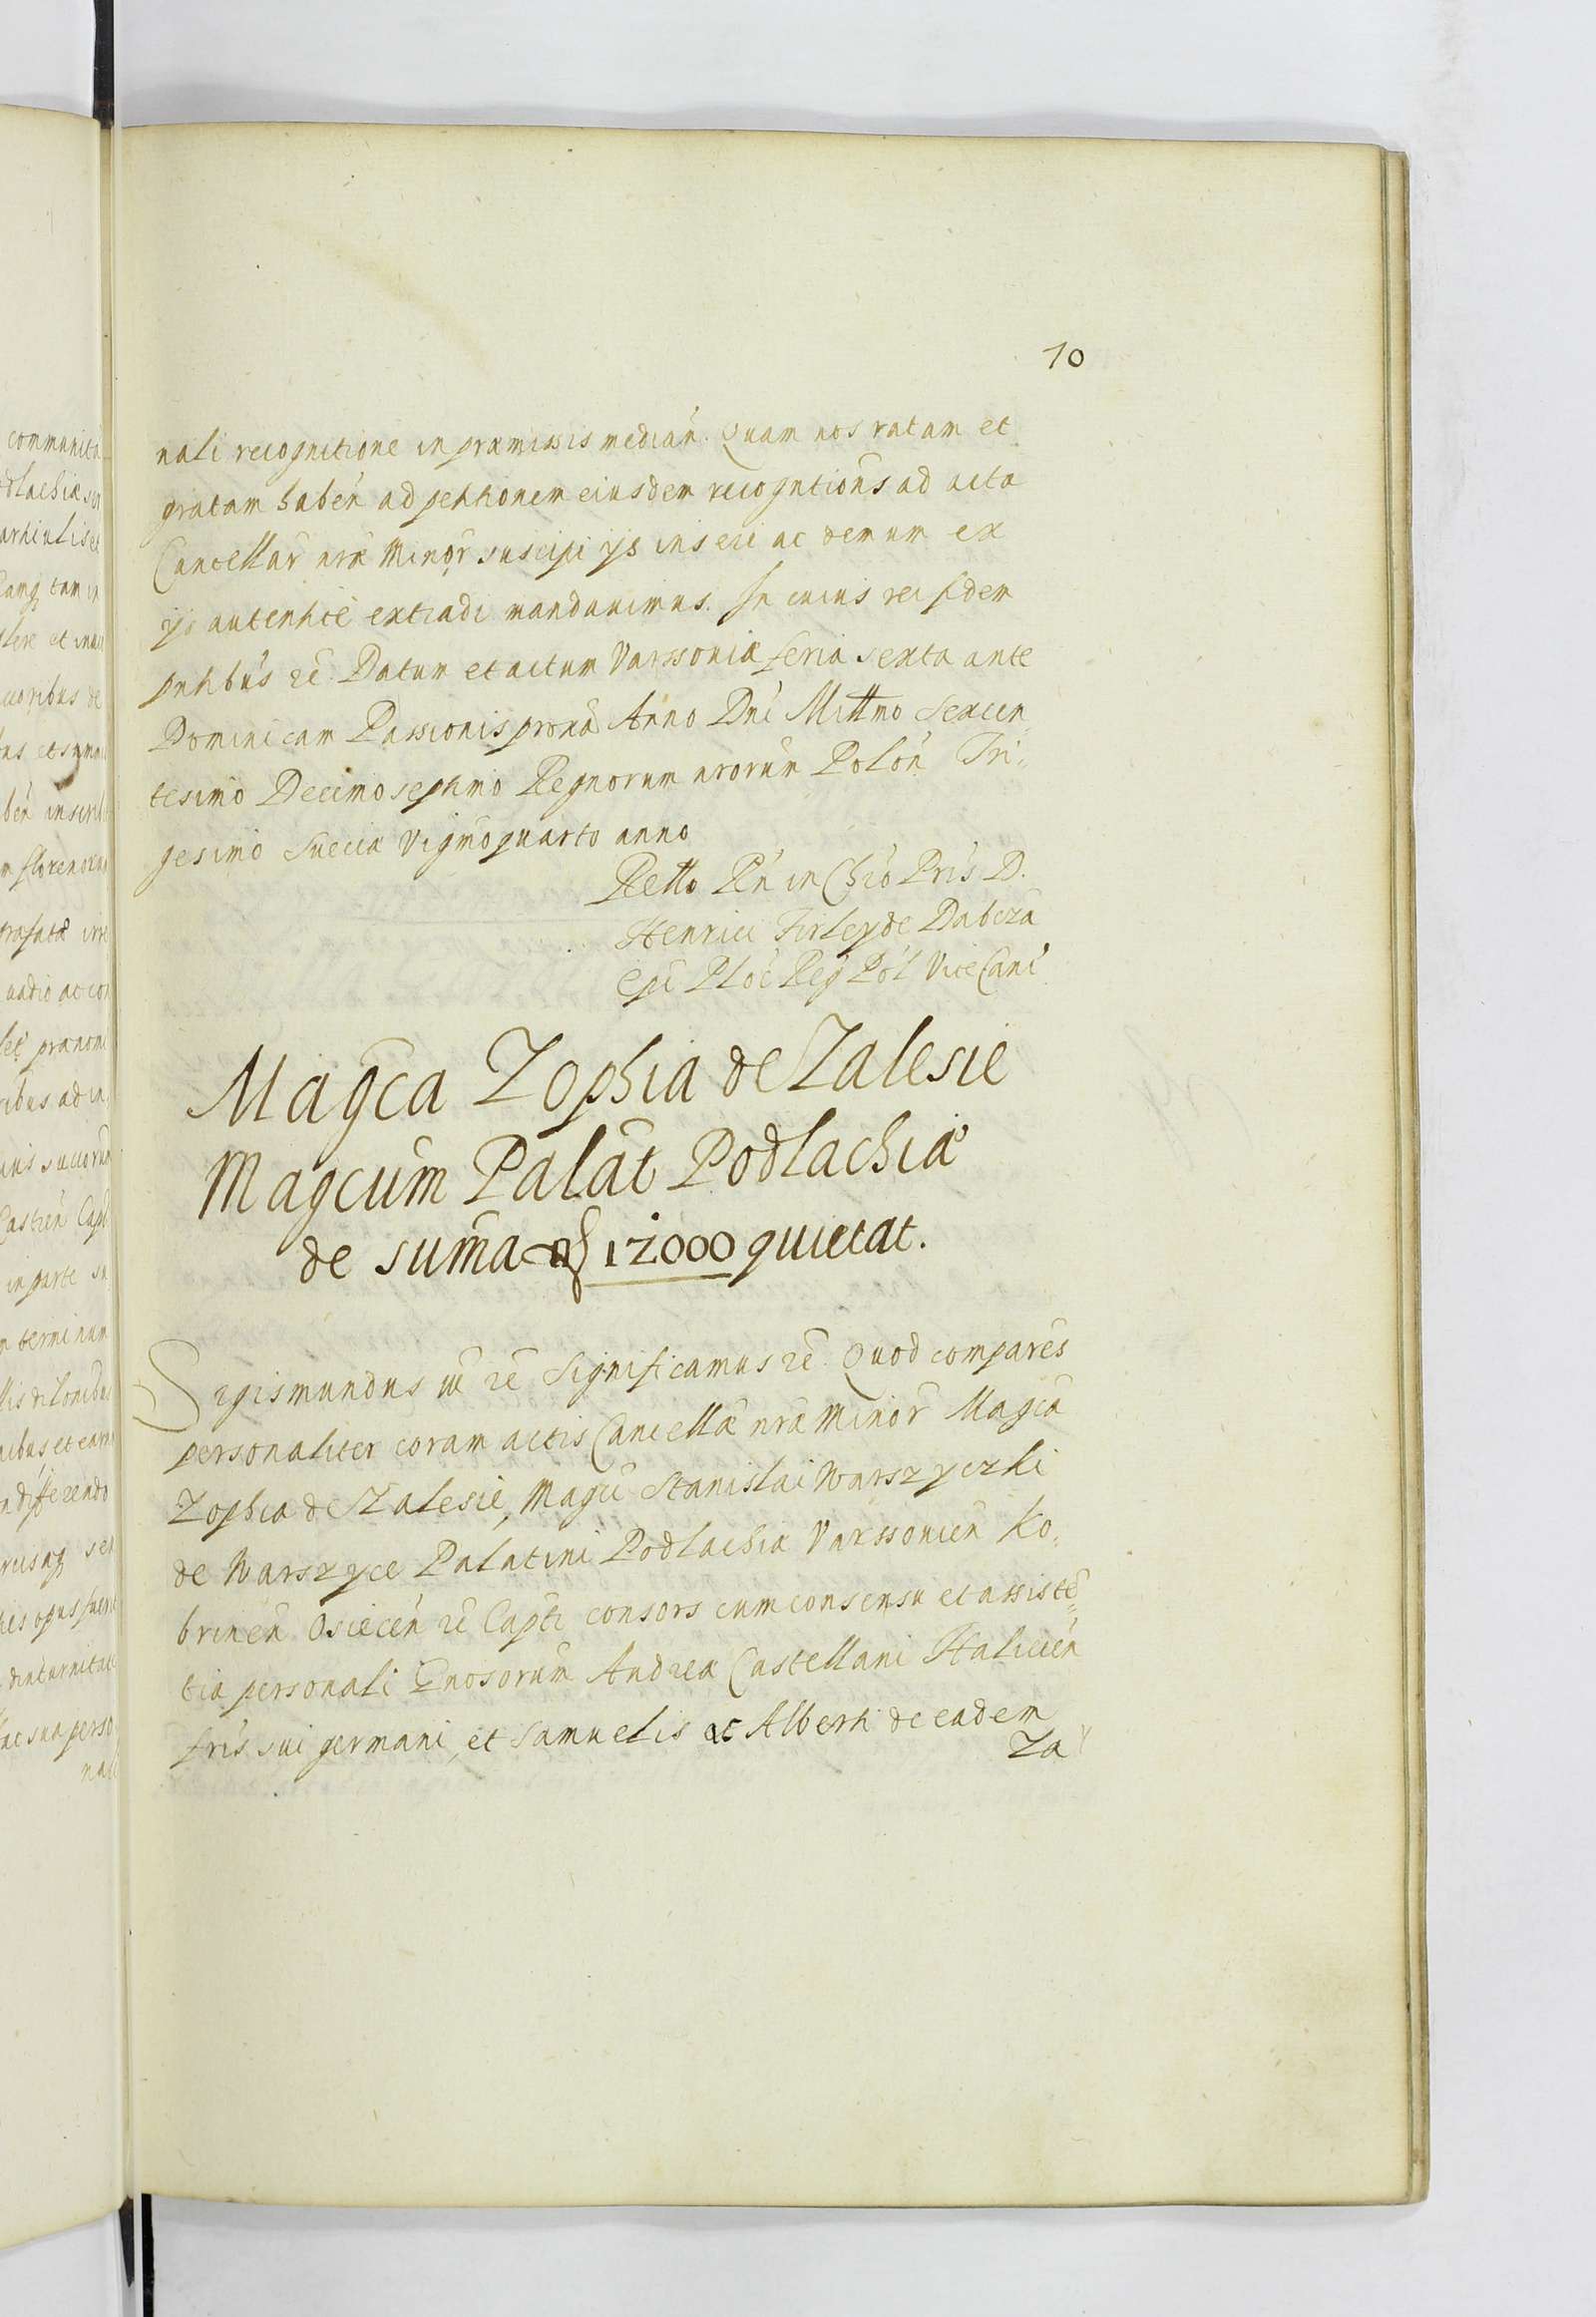 10
nali recognitione in præmissis median̄. Quam nos ratam et
gratam haben̄ ad petitionem eiusdem recogntion̄s ad acta
Cancellar̄ nræ Minor̄ suscipi ijs inseri ac demum ex
ijs autentice extradi mandauimus. In cuius rei fidem
pntibus rc̄ Datum et actum Varssouiæ feria sexta ante
Dominicam Passionis prox̄a Anno Dn̄i Millmo Sexcen„
tesimo Decimoseptimo Regnorum nrorum Polon̄ Tri„
gesimo Sueciæ Vigmoquarto anno
Retto Rn̄ in Chr̄o Pr̄is D.
Henrici Firley de Dabrza
Epi Ploc̄ Reḡ Pol̄ ViceCanc̄
Magc̄a Zophia de Zalesie
Magcum Palat̄ Podlachiæ
de sum̄a fl 12000 quietat.
Sigismundus iii rc̄ Significamus rc̄ Quod comparen̄s
personaliter coram actis Cancellæ nræ Minor̄ Magc̄a
Zophia de Zalesie, Magci Stanislai Warszyczki
de Warszyce Palatini Podlachiæ Varssouien̄ Ko„
brinen̄ Osiecen̄ rc̄ Capti consors cum consensu et assistē„
tia personali Gnosorum Andreæ Castellani Halicien̄
fris sui germani, et Samuelis ac Alberti de eadem
Za
communita
dlachiæ
articulis
tam in
et
uxoribus de
et summ
ben̄ inscrib
florenorum
præfatæ
uadio ac
prænomi
ribus ad in
succorum
Castren̄ Capt
in parte
terminum
ditionibus
nibus et earu
differendo
sen
opus fuerit
diuturnitate
ac sua perso
nali